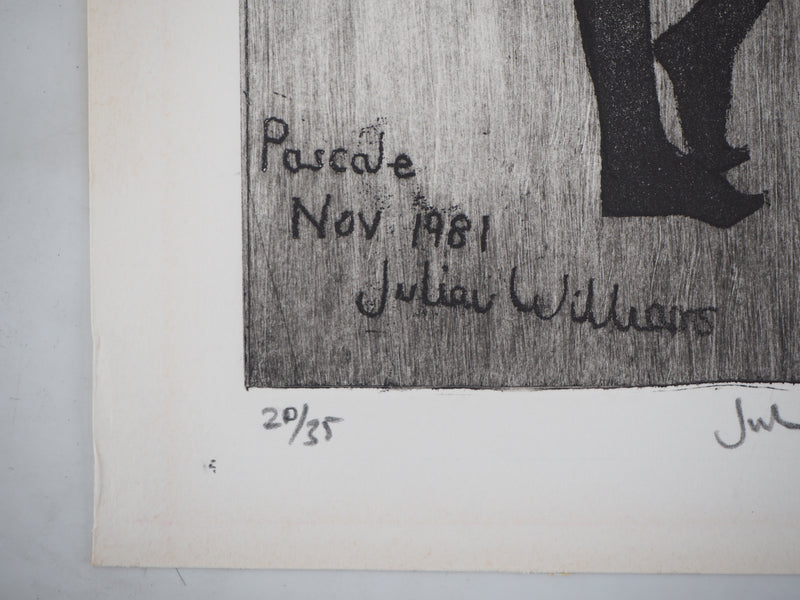 Pascale
Nov 1981
Julien Williams
20/35
Jul